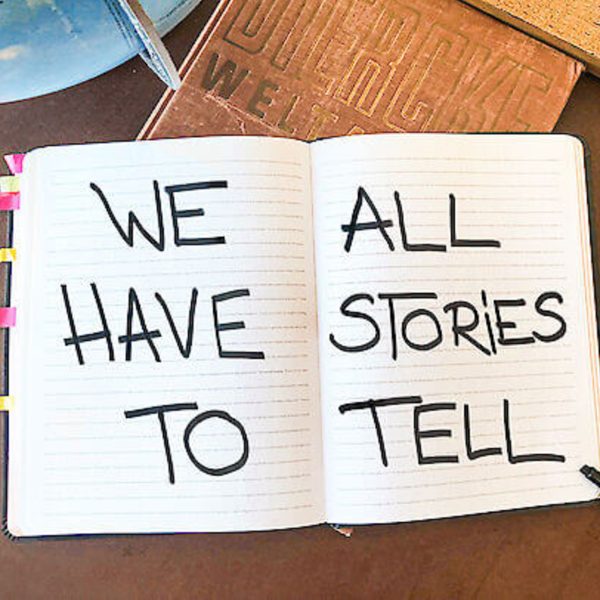 DIERCKE
WELTA
WE ALL
HAVE STORiES
TO TELL